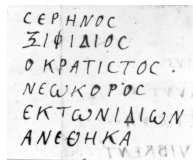 ϹΕΡΗΝΟϹ
ΞΙΦΙΔΙΟϹ
Ο ΚΡΑΤΙϹΤΟϹ ·
ΝΕΩΚΟΡΟϹ
ΕΚ ΤΩΝ ΙΔΙΩΝ
ΑΝΕΘΗΚΑ